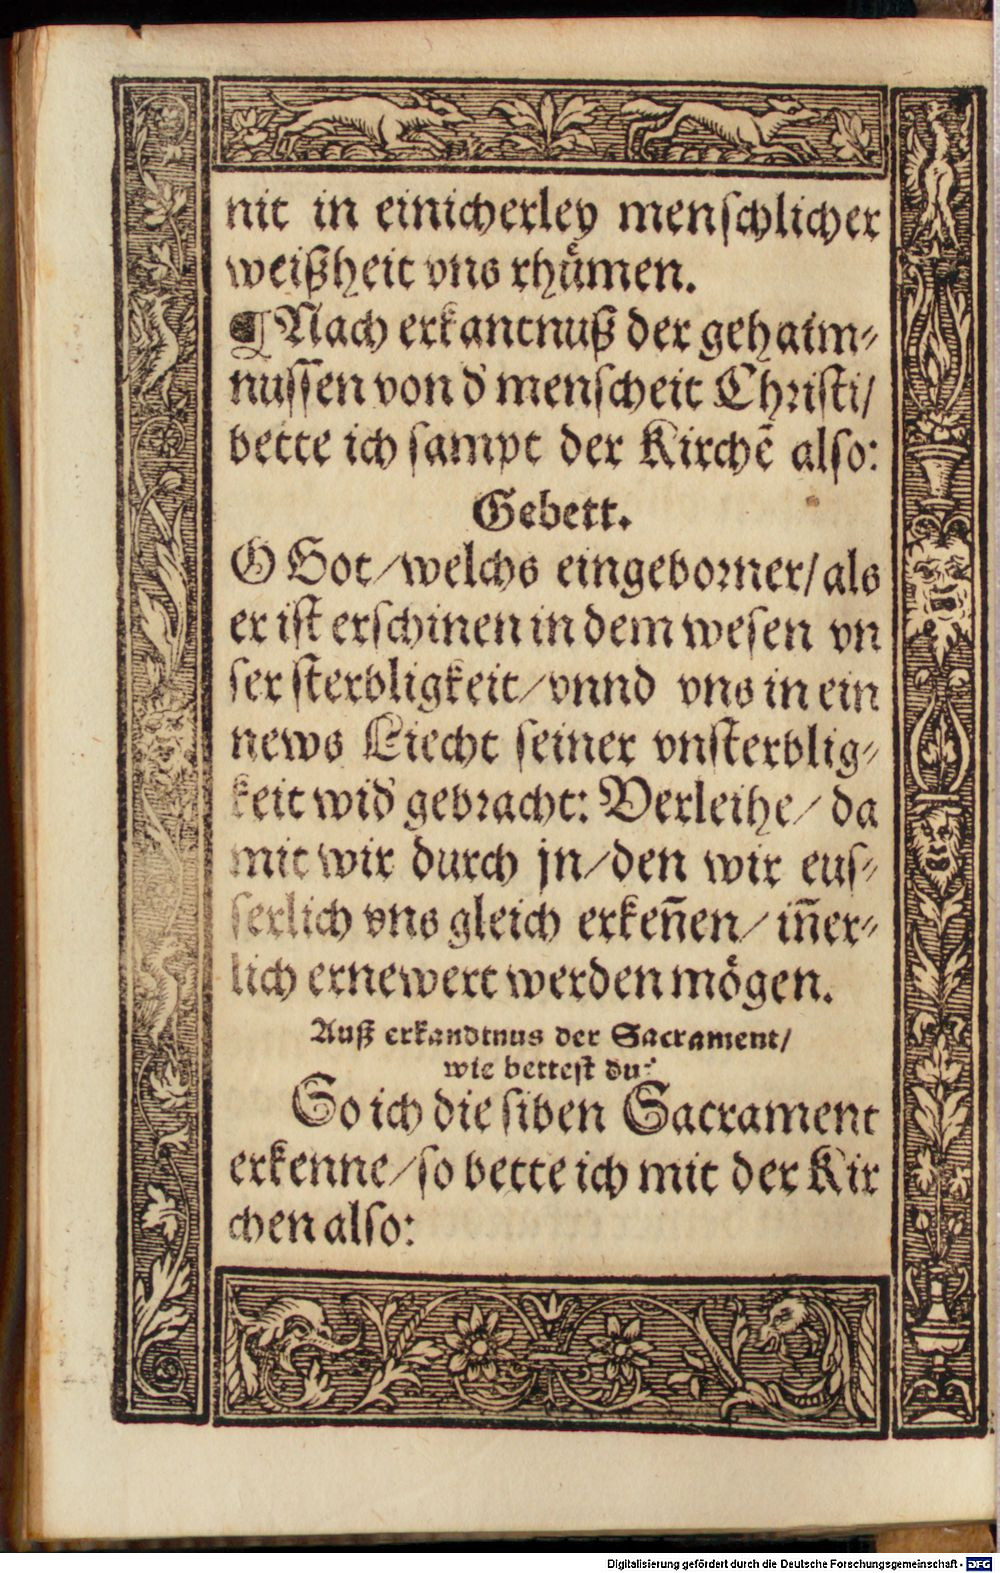 nit in einicherley menschlicher
weißheit vns rhuͤmen.
¶ Nach erkantnuß der gehaim⸗
nussen von d' menscheit Christi/
bette ich sampt der Kirchē also:
Gebett.
O Got/welchs eingeborner/als
er ist erschinen in dem wesen vn
ser sterbligkeit/vnnd vns in ein
news Liecht seiner vnsterblig⸗
keit wid' gebracht: Verleihe/ da
mit wir durch jn/den wir eus⸗
serlich vns gleich erkeñen/ iñer⸗
lich ernewert werden moͤgen.
Auß erkandtnus der Sacrament/
wie bettest du?
So ich die siben Sacrament
erkenne/so bette ich mit der Kir
chen also:
Digitalisierung gefördert durch die Deutsche Forschungsgemeinschaft - DFG